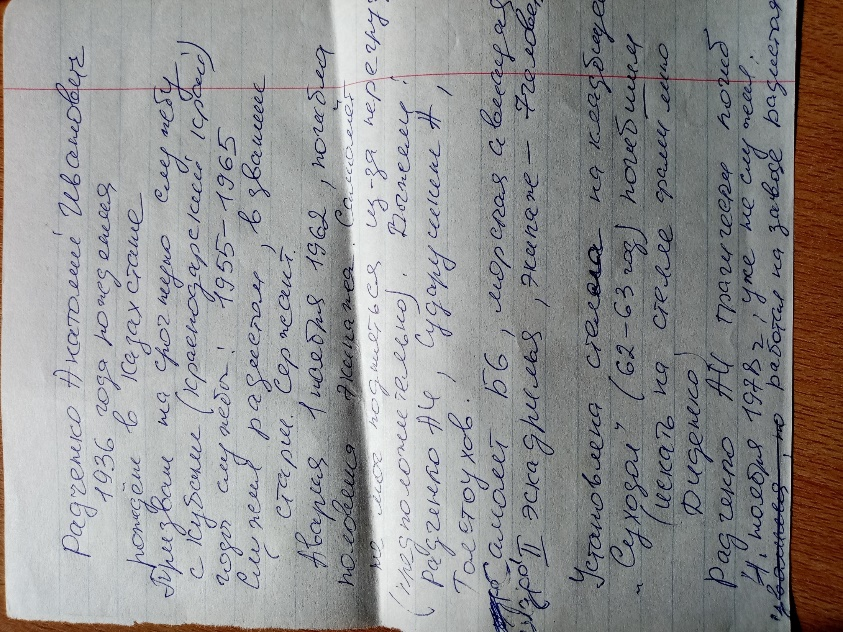 Радченко Анатолий Иванович
1936 года рождения
рождён в Казахстане
Призван на срочную службу
с Кубани (Краснодарский край)
годы службы: 1955-1965
Служил радистом, в звании
(старш. Сержант.
Авария 1 ноября 1962, погибла
половина экипажа. Самолёт
не мог подняться из-за перегруз
(предположительно). Выжили:
Радченко АИ, Сударушкин А,
Толстоухов.
самолёт Б6, морская авиация
II эскадрилья, экипаж - 7 челове
Установлена стелла на кладбище
"Суходол" (62-63 год) погибшим
(искать на стелле фамилию
Диденко)
Радченко АИ трагически погиб
4 ноября 1978 г, уже не служил.
но работал на заводе радистом